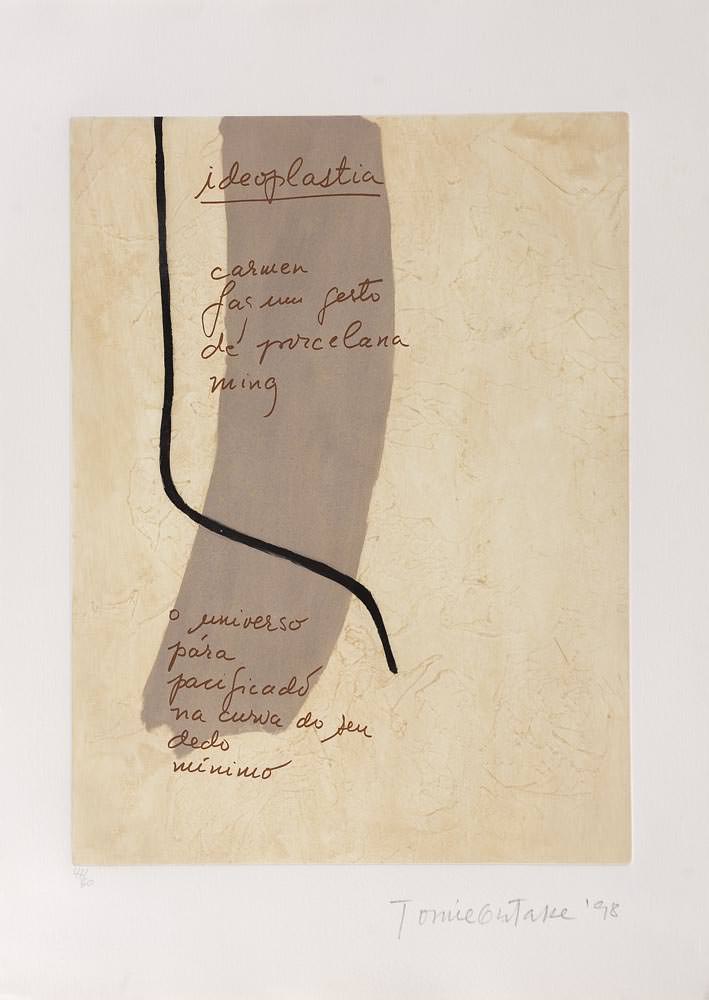 ideoplastia
carmen
faz um gesto
de porcelana
ming
o universo
pára
pacificado
na curva do seu
dedo
mínimo
Tomie Ohtake '98